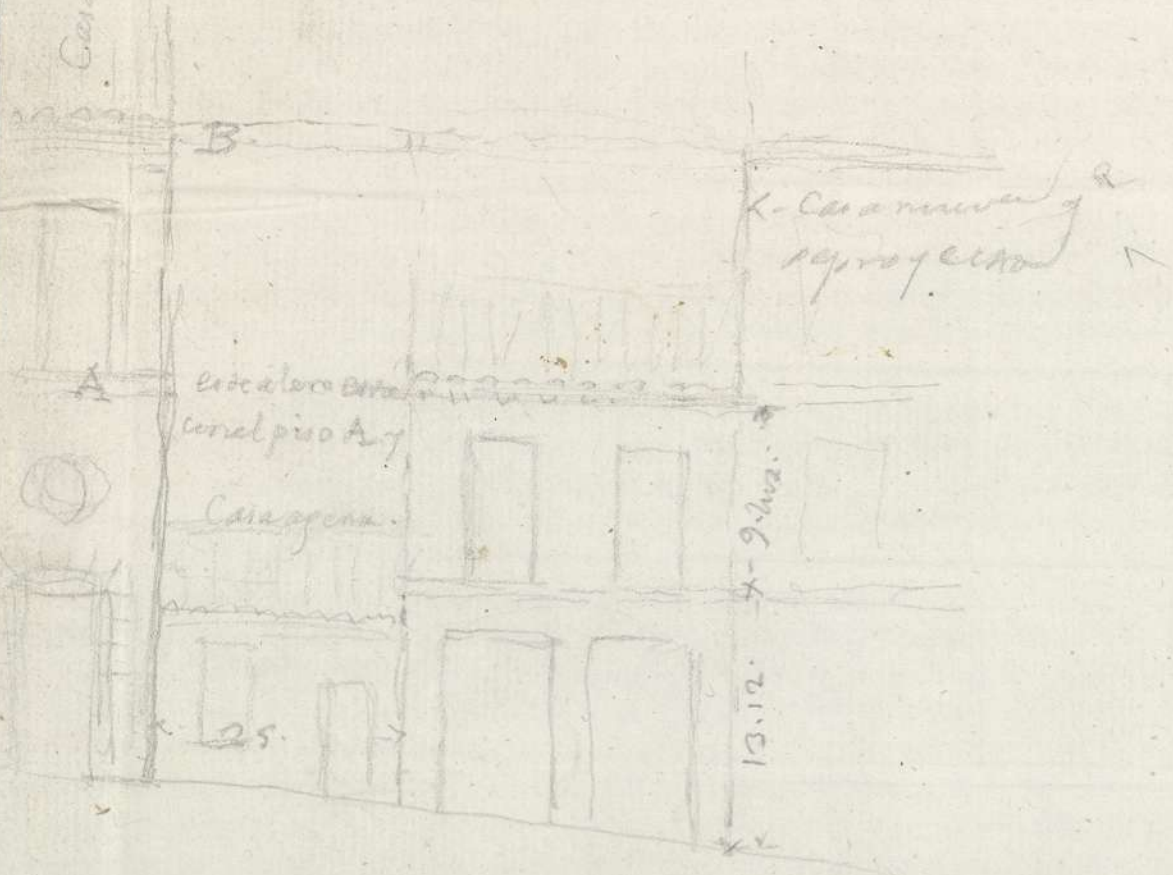 Cas
B
X - Casa nueva q
se proyecta
A
este alero enra
con el piso A y
Casa agena.
9.
25.
13.12.